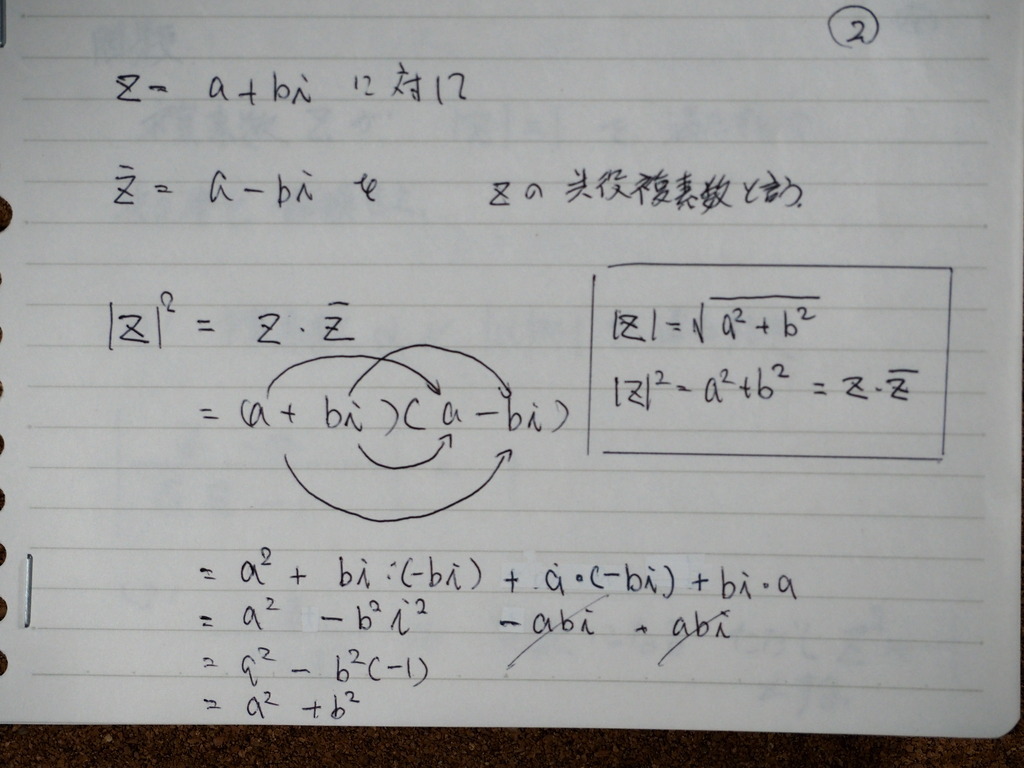 ②
z = a + bi に対して
z̄ = a - bi を zの共役複素数と言う.
|z|² = z · z̄
= (a + bi)(a - bi)
|z| = √(a² + b²)
|z|² = a² + b² = z · z̄
= a² + bi · (-bi) + a · (-bi) + bi · a
= a² - b²i² - abi + abi
= a² - b²(-1)
= a² + b²